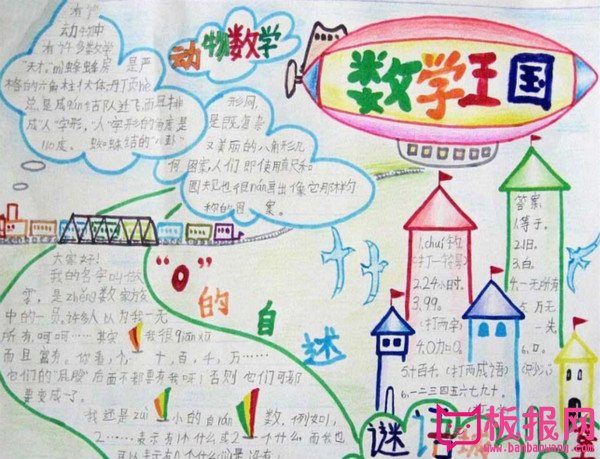 动物中
有许多数学
"天才"。蜂房是严
格的六角柱状体,丹顶hè
总是成qún结队迁飞,而且排
成"人"字形,"人"字形的角度是
110度。蜘蛛结的"八卦"
形网,
是既复杂
又美丽的八角形几
何图案,人们即使用直尺和
圆规也很nán画出像它那样匀
称的图案。
动物数学
数学王国
大家好!
我的名字叫做
零,是zhěng数家族
中的一员。许多人以为我一无
所有,呵呵……其实我很
而且富有。你看,个,十,百,千,万……
它们的"屁股"后面不都要有我呀!否则它们可都
要变成了。
我还是zuì小的自rán数,例如1,
2……表示有1个什么或2个什么,而我也
可以表示0个什么,
"0"的自述
1.chuī
(打一符号)
2.24小时。
3.99。
(打两字)
4.
5.十百千。(打两成语)
6.一二三四五六七九十。
答案
1.等于。
2.旧。
3.白。
4.一无所有
5.万无
一失。
6.
谜语
板报网
www.banbaowang.com